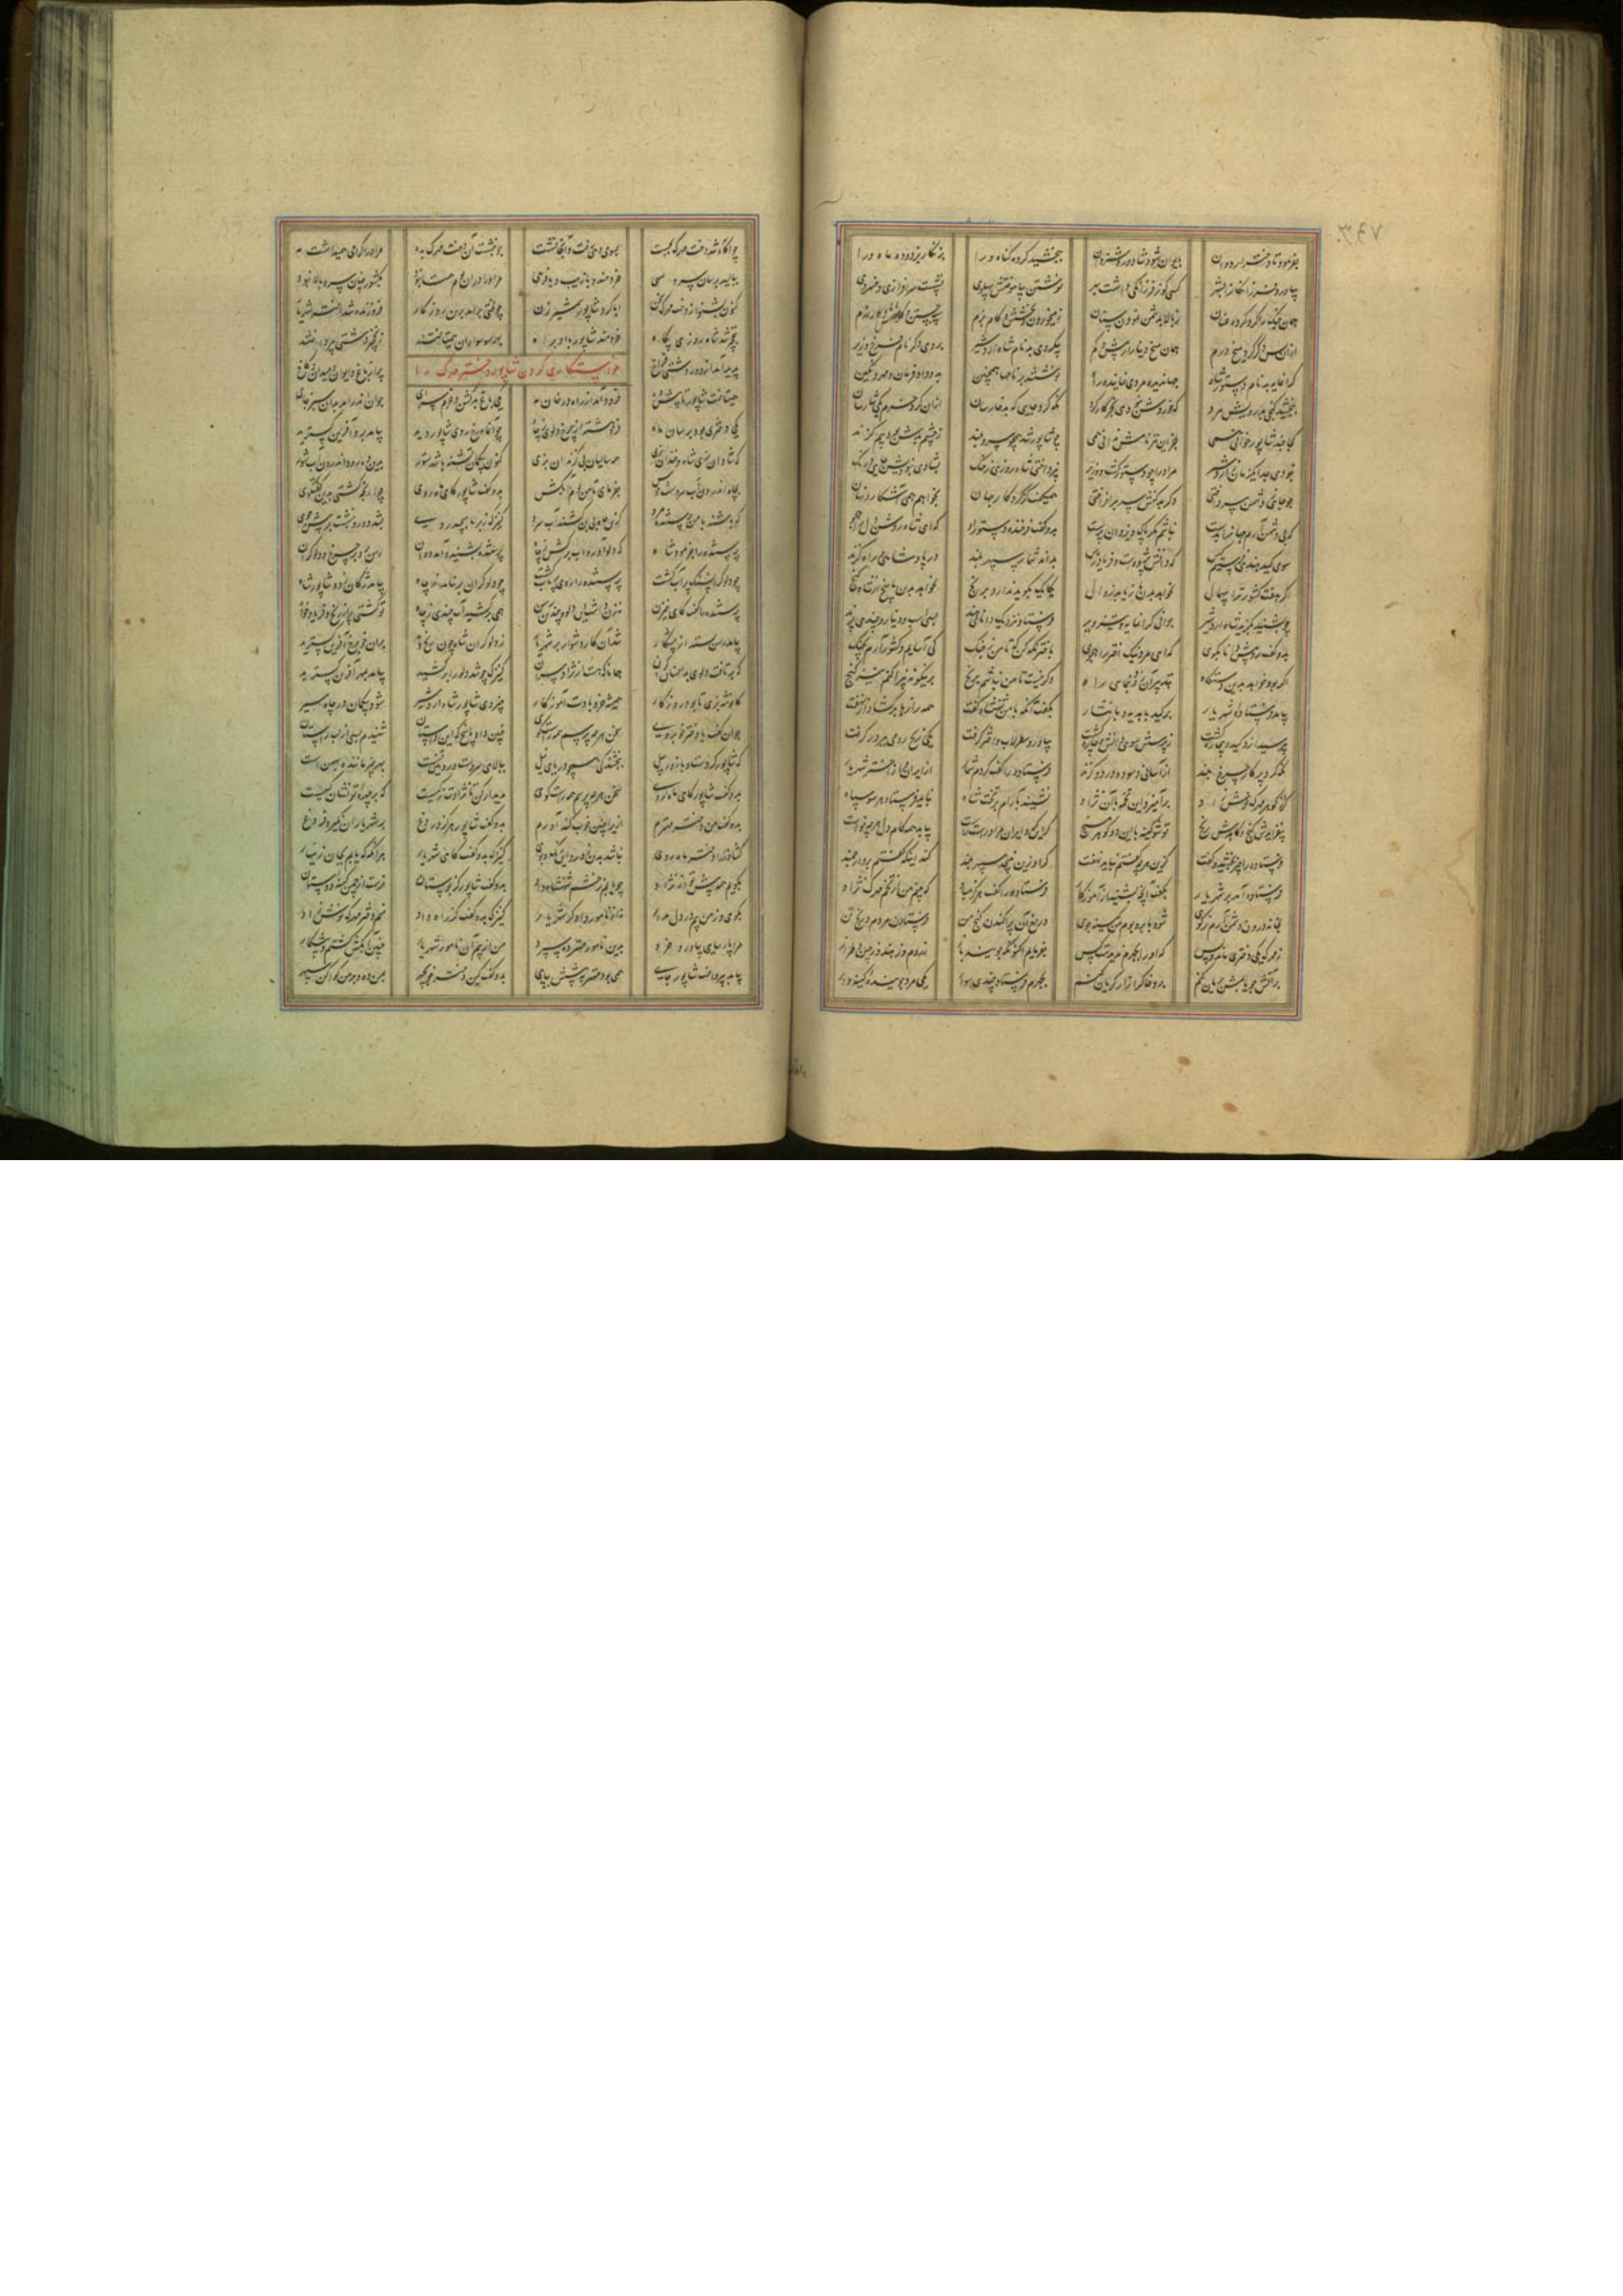 بفرمود تا دختر اردوان بایوان شود شاد و روشن روان ببخشید کرده گناه ورا ز زنگار بزدود ماه ورا
بیاورد فرهنگیان را بشهر کسی کو ز فرزانگی داشت بهر نوشتن بیاموختش پهلوی نشست سرافرازی و خسروی
همان جنک را کرد کرده عنان ز بالا بدشمن نمودن سنان ز می خوردن و بخشش و کام بزم سپه جستن و کوشش و کار رزم
ازان پس دکر کرد میخ درم همان میخ دینار و بیش و کم بیکروی بد نام شاه اردشیر بروی دکر نام فرخ وزیر
کرانمایه بد نام دستور شاه جهاندیده مردی نماینده راه نوشتند بر نامها همچنین بدو داد فرمان و مهر و نکین
ببخشید کنجی بدرویش مرد که خوردش نبودی بجز کارکرد نکه کرد جایی که بد خارسان ازان کرد خرم یکی شارسان
کجا جند شاپور خوانی همی جز این نیز نامش ندانی همی چو شاپور شد همچو سرو بلند ز چشم بدش بود بیم کزند
نبودی جدا یکزمان ز اردشیر مر اورا چو دستور کشت و وزیر نپرداختی شاه روزی ز جنک بشادی نبودیش جای درنک
چو جایی ز دشمن بپرداختی دکر بدکنش سر برافراختی همیکفت کز کردکار جهان بخواهم همی آشکار و نهان
که بی دشمن آرم جهانرا بدست نباشم مکر پاک و یزدان پرست بدو کفت فرخنده دستور راه که ای شاه روشن دل
سوی کید هندی فرستیم کس که دانش پژوهست و فریادرس بداند شمار سپهر بلند در پادشاهی و راه کزند
اکر هفت کشور ترا بی همال بخواهد بدن یکایک بکوید ندارد برنج نخواهد بدین پاسخ از شاه کنج
چو بشنید بکزید شاه اردشیر جوانی کرانمایه و تیزویر فرستاد نزدیک دانا بهند بسی اسب و دینار و چندی پرند
بدو کفت رو پیش دانا بکوی که ای مرد نیک اختر راه جوی باختر نکه کن که تا من ز جنک کی آسایم و کشور آرم بچنک
اکر بود خواهد بدین دستکاه بتدبیر آن راه وکر نیست تا من نباشم برنج برینکونه کنج
بیامد فرستاده شهریار بر کید با هدیه و با نثار بکفت آنکه با من شهنشاه کفت همه رازها برکشاد از نهفت
بپرسید ازو کید و غمخواره کشت ز پرسش سوی دانش و چاره کشت بیاورد صطرلاب و اختر کرفت یکی زیج رومی ببر در کرفت
نکه کرد بر کار چرخ بلند ز آسانی و سود و درد و کزند فرستاده را کفت کردم شمار از ایران و از اختر شهریار
کر از کوهر مهرک نوش زاد برآمیزد این تخمه با آن نژاد نشیند بآرام بر تخت شاه نباید فرستاد هر سو سپاه
بیفزایدش کنج و کاهدش رنج تو شو کینه با این دو کوهر مسنج کر این کرد ایران ورا راست کشت بیابد همه کام دل هرچه خواست
فرستاده را چیز بخشید و کفت کزین هرچه کفتم نباید نهفت کر او زین نپیچد سپهر بلند کند اینکه کفتم برو ارجمند
فرستاده آمد بر شهریار بکفت آنچه بشنید از آموزکار فرستاده را کفت هرکز مباد که بینم من از تخم مهرک نژاد
بخانه درون دشمن آرم ز کوی شود با بر و بوم من کینه جوی دریغ آن پراکندن کنج من فرستادن مردم و رنج تن
ز مهرک یکی دختری ماند و بس که اورا بجهرم ندیدست کس بفرمایم اکنون که جویند باز ز روم و ز هند و ز چین و طراز
بر آتش چو یابمش بریان کنم برو خاک را زار کریان کنم بجهرم فرستاد چندی سوار یکی مرد جوینده و کینه دار
چو آکاه شد دخت مهرک بجست بسوی دهی رفت و آنجا نشست چو بنشست آن دخت مهرک بده مر اورا کرامی همیداشت مه
ببالید برسان سرو سهی خردمند و با زیب و با فرهی مر اورا دران بوم همتا نبود بکشور چنان سرو بالا نبود
کنون بشنو از دخت مهرک سخن ابا کرد شاپور شمشیر زن چو لختی برآمد برین روزکار فروزنده شد اختر شهریار
بنخچیر شد شاه روزی پکاه خردمند شاپور با او براه بهر سو سواران همی تاختند ز نخچیر دشتی بپرداختند
پدید آمد از دور دشتی فراخ پر از باغ و ایوان و میدان و کاخ
خواستکاری کردن شاپور دختر مهرک را
همی تاخت شاپور تا پیش ده فرود آمد از راه در خان مه یکی باغ بد کشن و خرم سرای جوان اندر آمد بدان سبز جای
یکی دختری بود برسان ماه فروهشته از چرخ دلوی بچاه چو آن ماهرخ روی شاپور دید بیامد برو آفرین کسترید
که شادان بزی شاه و خندان بزی همه سالیان بی کزندان بزی کنون بیکمان تشنه باشد ستور بدین ده رود اندرون آب شور
بچاه اندرون آب سردست و خوش بفرمای تا من بوم آبکش بدو کفت شاپور کای ماه روی چرا رنجه کشتی بدین کفتکوی
که باشند با من پرستنده مرد کزین چاه بی بن کشند آب سرد کنیزک ز برنا بپیچید روی بشد دور و بنشست بر پیش جوی
پرستنده را بفرمود شاه که دلو آور و آب برکش ز چاه پرستنده بشنید و آمد دوان رسن برد بر چرخ دلو کران
چو دلو کران پر آب کشت پرستنده را روی پرتاب کشت چو دلو کران برنیامد ز چاه بیامد ژکان زود شاپور شاه
پرستنده را کفت کای نیم زن نه زن داشت این دلو و چندین رسن همی برکشید آب چندی ز چاه تو کشتی پر از رنج و فریادخواه
بیامد رسن بستد از پیشکار شد آن کار دشوار بر شهریار ز دلو کران شاه چون رنج دید بران خوبرخ آفرین کسترید
که برتافت دلوی بدینسان کران همانا که هست از نژاد سران کنیزک چو شد دلو را برکشید بیامد بمهر آفرین کسترید
که نوشه بزی تا بود روزکار همیشه خرد بادت آموزکار بنیروی شاپور شاه اردشیر شود بیکمان در چاه شیر
جوان کفت با دختر خوبروی سخن هرچه پرسم همه راست کوی چنین داد پاسخ که این داستان شنیدم بسی از لب راستان
که شاپور کردست و با زور پیل ببخشندکی همچو دریای نیل ببالای سروست و رویین تنست بهر چیز ماننده بهمن است
بدو کفت شاپور کای ماه روی سخن هرچه پرسم همه راست کوی پدیدار کن تا نژادت ز کیست که بر چهره تو نشان کییست
بدو کفت من دختر مهترم ازیرا چنین خوب و کنداورم بدو کفت شاپور هرکز دروغ بر شهریاران نکیرد فروغ
کشاورز را دختر ماه روی نباشد بدین کنیزک بدو کفت کای شهریار هرآنکه که یابم بجان زینهار
بکویم همه پیش تو از نژاد چو یابم ز خشم شهنشاه داد بدو کفت شاپور کز بوستان نرست از چمن کینه دوستان
بکوی و ز من بیم در دل مدار نه از نامور دادکر شهریار کنیزک بدو کفت کز راه داد منم دختر مهرک نوش زاد
مرا پارسایی بیاورد خرد بدین نامور مهتر ده سپرد من از بیم آن نامور شهریار چنین آبکش کشتم و پیشکار
بیامد بپردخت شاپور جای همی بود مهتر به پیشش بپای بدو کفت کین دختر خوبچهر بمن ده و بر من کوا کن سپهر